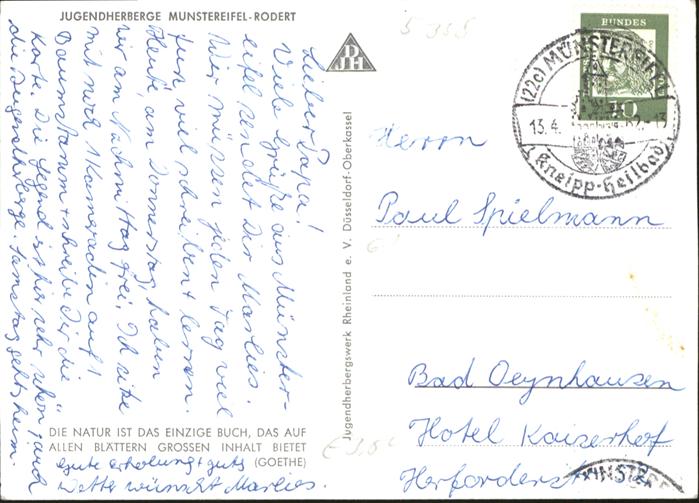 JUGENDHERBERGE MÜNSTEREIFEL-RODERT
Lieber Papa!
Viele Grüße aus Münster-
eifel sendet Dir Marlies.
Wir müssen jeden Tag viel
tun, viel schreiben + lernen.
Heute, am Donnerstag, haben
wir am Nachmittag frei. Ich sitze
mit noch 1 Kameradin auf 1
Baumstamm + schreibe Dir die
Karte. Die Gegend ist hier sehr schön, auch
die Jugendherberge. Samstag geht's heim.
DIE NATUR IST DAS EINZIGE BUCH, DAS AUF
ALLEN BLÄTTERN GROSSEN INHALT BIETET
(GOETHE)
Gute Erholung + gutes
Wetter wünscht Marlies.
DJH
Jugendherbergswerk Rheinland e. V. Düsseldorf-Oberkassel
5355
BUNDES
10
(22c) MÜNSTEREIFEL
13.4. 62-13
Kneipp-Heilbad
Herrn
Paul Spielmann
Bad Oeynhausen
Hotel Kaiserhof
Herforderstr.
MÜNSTERE